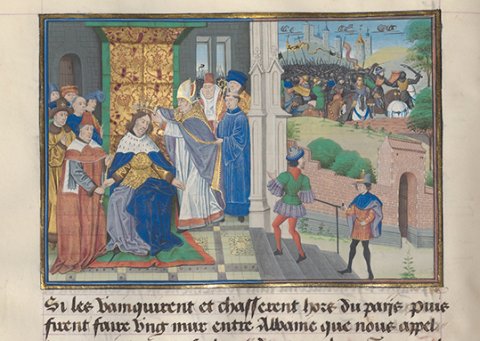 Si les vainquirent et chasserent hors du pays Puis
firent faire ung mur entre Albanie que nous appel